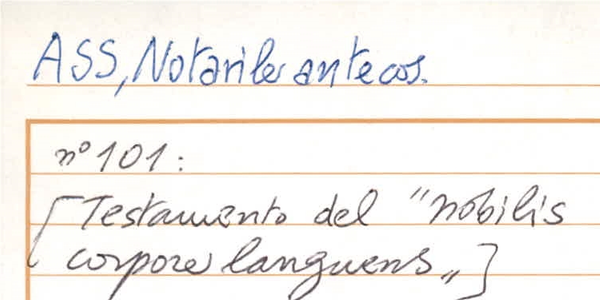 ASS, Notarile antecos.
n° 101:
[Testamento del "nobilis
corpore languens"]